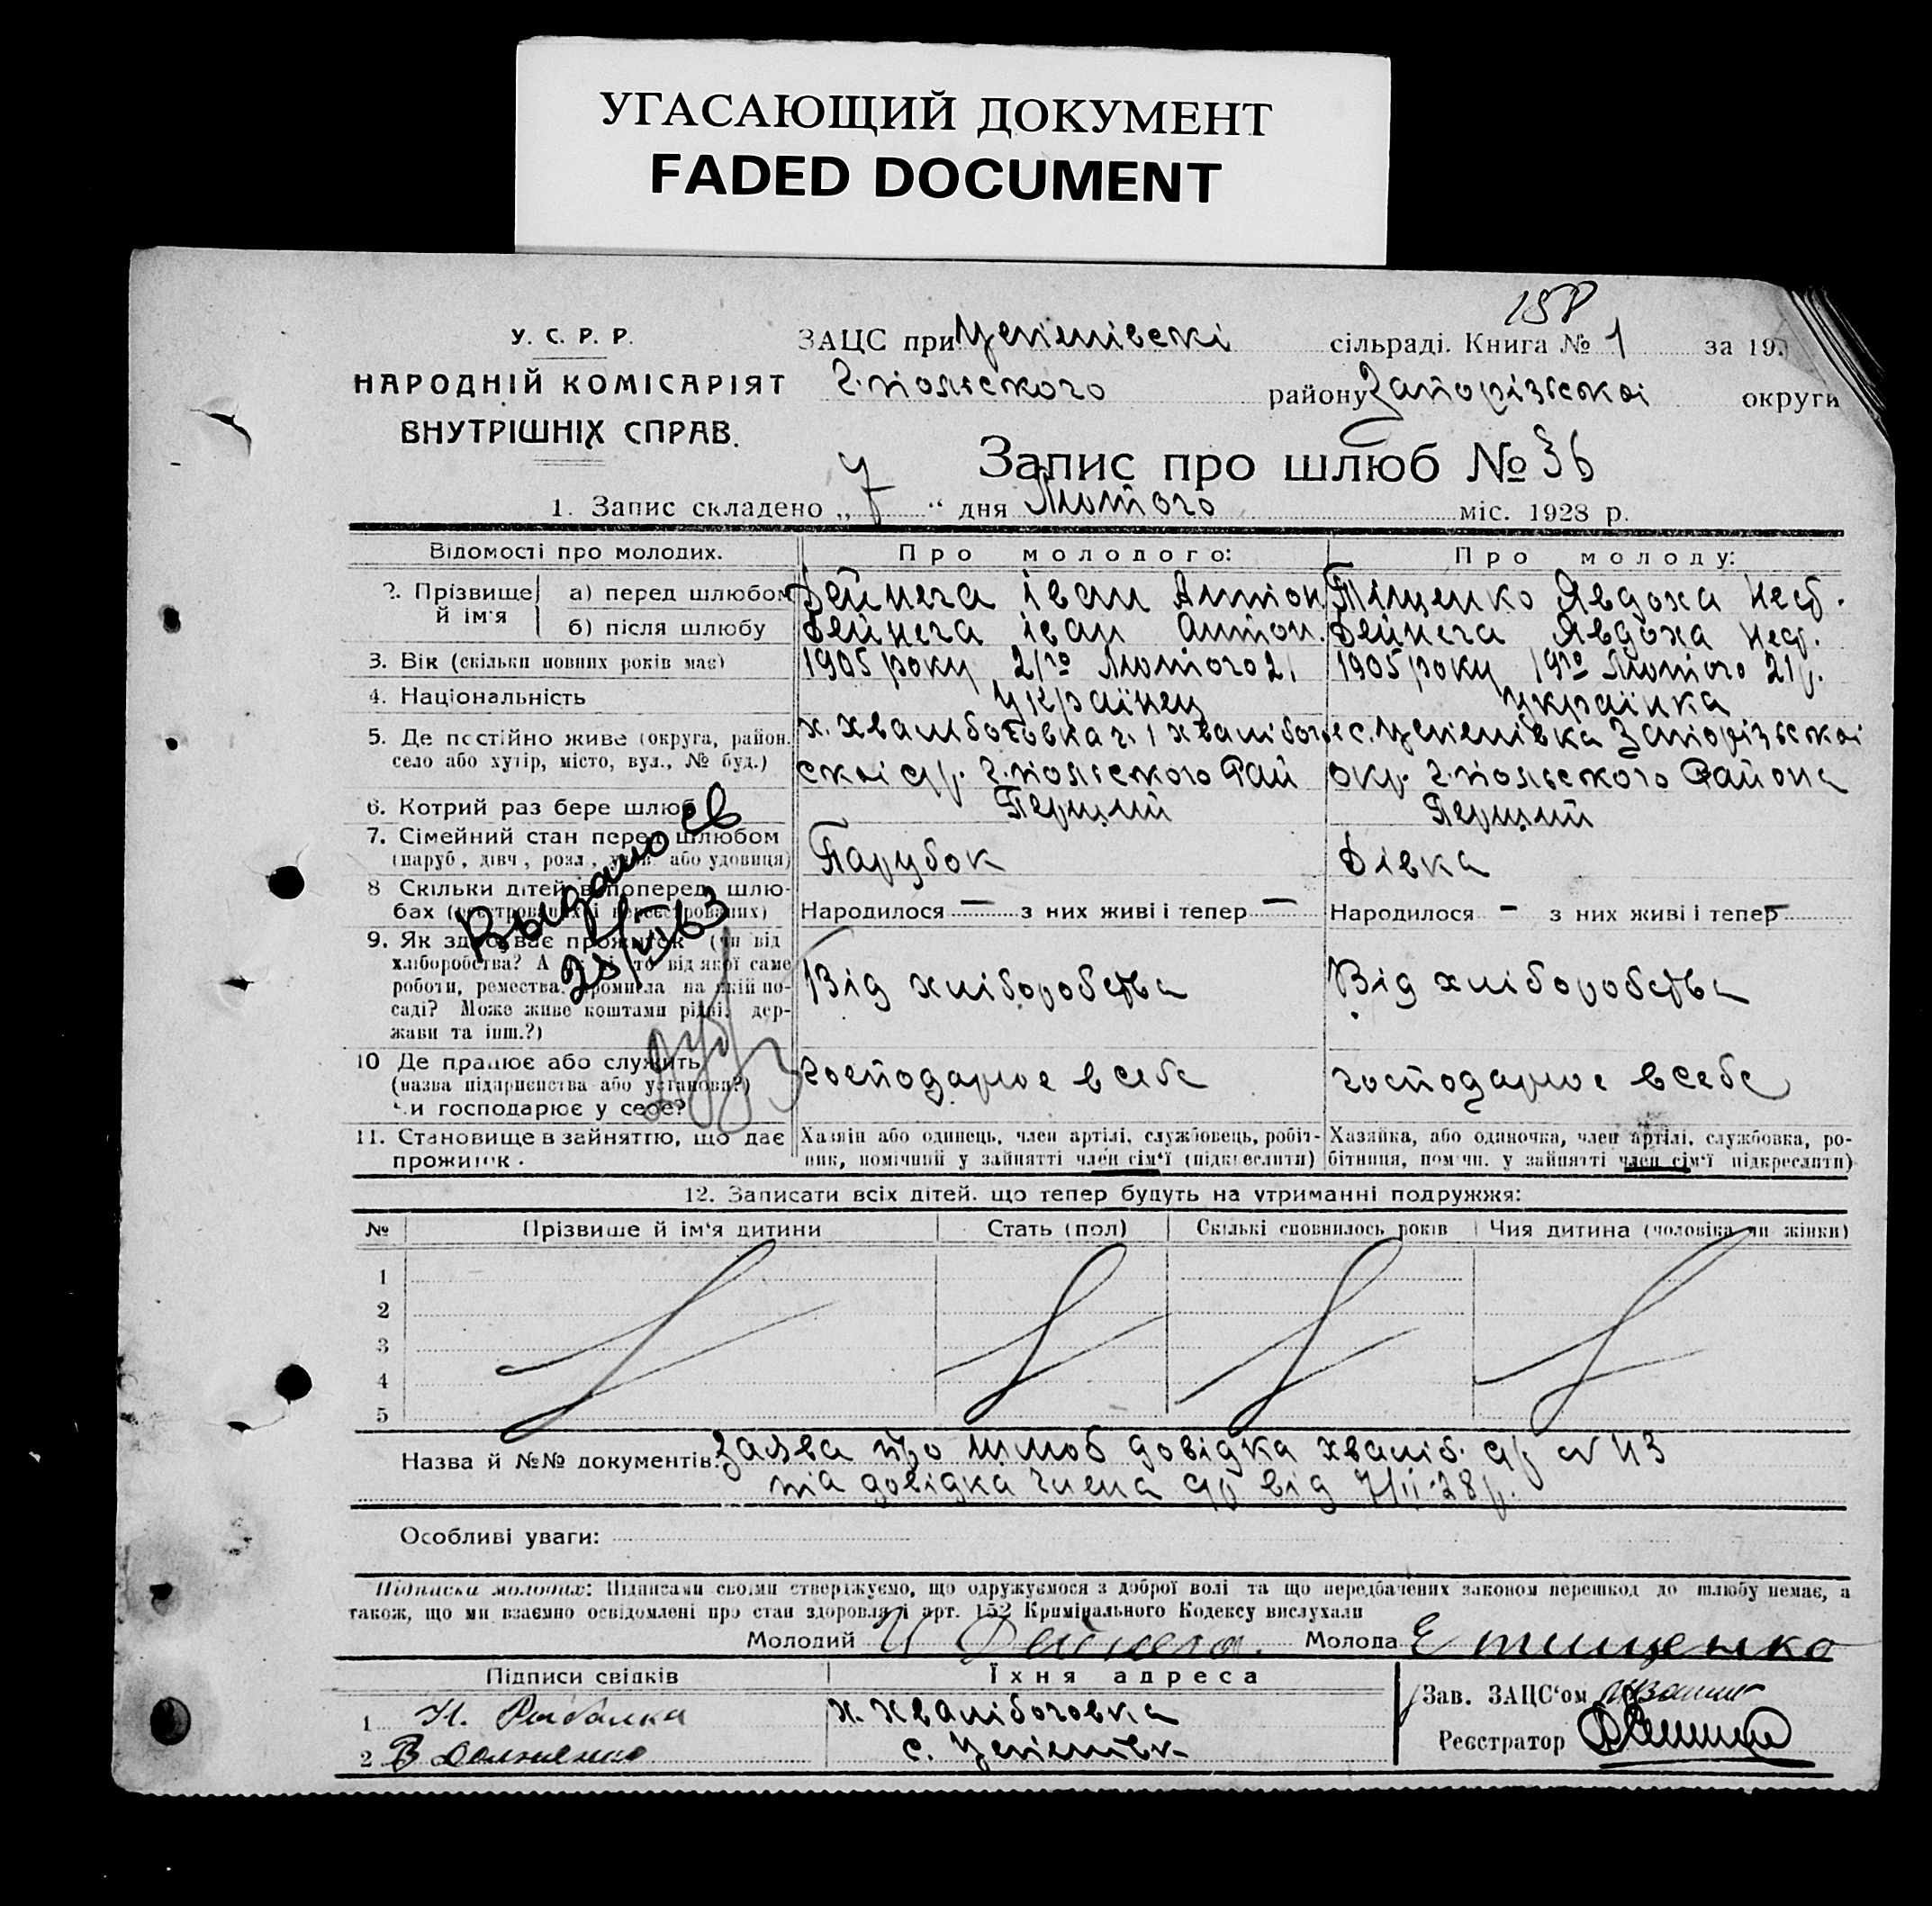 УГАСАЮЩИЙ ДОКУМЕНТ
FADED DOCUMENT
У. С. Р. Р.
НАРОДНІЙ КОМІСАРІЯТ
ВНУТРІШНІХ СПРАВ.
ЗАЦС при сільраді. Книга № 1 за 19
Г.польского району Запорізської округи
Запис про шлюб № 36
1. Запис складено „ 7 “ дня Лютого міс. 1928 р.
Відомості про молодих. Про молодого: Про молоду:
2. Прізвище й ім'я
а) перед шлюбом Дейнега Іван Антон Тіщенко Явдоха Неф.
б) після шлюбу Дейнега Іван Антон. Дейнега Явдоха Неф.
3. Вік (скільки повних років має) 1905 року 21го Лютого 1905 року 19го Лютого
4. Національність Українец Українка
5. Де постійно живе (округа, район,
село або хутір, місто, вул., № буд.)
Г.польского Рай
окр. Г.польского Района
6. Котрий раз бере шлюб Перший Перший
7. Сімейний стан перед шлюбом
(паруб., дівч., розл., удов. або удовиця) Парубок Дівка
8 Скільки дітей в попередн. шлю-
бах (реєстрованих і нереєстрованих) Народилося — з них живі і тепер — Народилося - з них живі і тепер -
9. Як здобуває прожиток (чи від
хліборобства? А як ні, то від якої саме
роботи, ремества, промисла на якій по-
саді? Може живе коштами рідні, дер-
жави та інш.?)
Від хліборобства Від хліборобства
Выдано св
10 Де працює або служить
(назва підприємства або установи?)
чи господарює у себе?
господарює в себе господарює в себе
11. Становище в зайняттю, що дає
прожиток.
Хазяїн або одинець, член артілі, службовець, робіт-
ник, помічний у зайнятті член сім'ї (підкреслити)
Хазяйка, або одиночка, член артілі, службовка, ро-
бітниця, помічн. у зайнятті член сім'ї підкреслити)
12. Записати всіх дітей. що тепер будуть на утриманні подружжя:
№ Прізвище й ім'я дитини Стать (пол) Скількі сповнилось років Чия дитина (чоловіка чи жінки)
1
2
3
4
5
Назва й №№ документів: Заява про шлюб довідка хваліб. с/р № 43
та довідка члена с/р від 7/II-28 р.
Особливі уваги:
Підписки молодих: Підписами своїми стверджуємо, що одружуємося з доброї волі та що передбачених законом перешкод до шлюбу немає, а
також, що ми взаємно освідомлені про стан здоровля і арт. 152 Кримінального Кодексу вислухали
Молодий И Дейнега. Молода Е тищенко
Підписи свідків Їхня адреса
1 Рыбалка х. Хвалібоговка
2
Зав. ЗАЦС'ом
Реєстратор